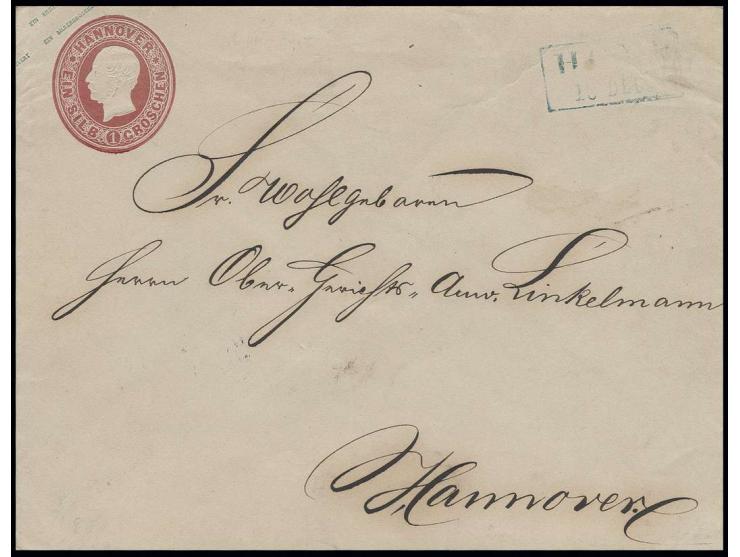 HANNOVER
EIN SILB. 1 GROSCHEN
Sr. Wohlgebaren
Herrn Ober-Gerichts-Anw. Linkelmann
Hannover.